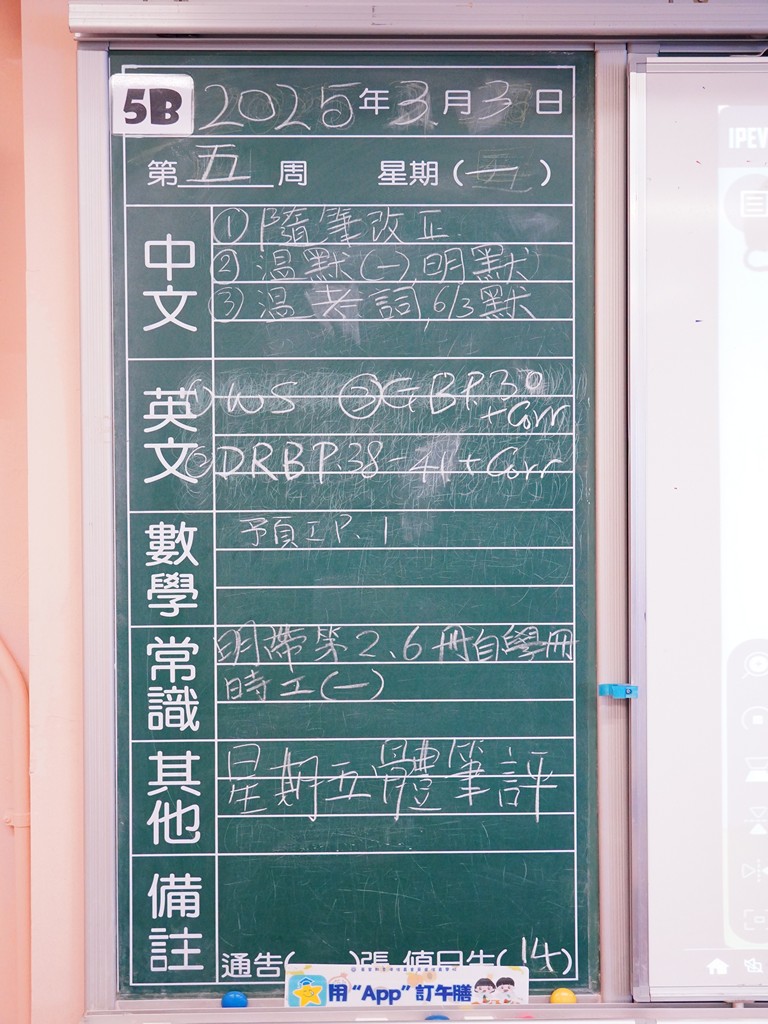 5B 2025年3月3日
第五周 星期(一)
中文
① 隨筆改正
② 温默(一),明默
③ 温考詞,6/3默
英文
① WS ② GBP.30
+Corr
③ DRBP.38-41+Corr
數學
預工P.1
常識
明帶第2、6冊自學冊
時工(一)
其他
星期五體筆評
備註
通告( )張 值日生(14)
用“App”訂午膳
IPEV